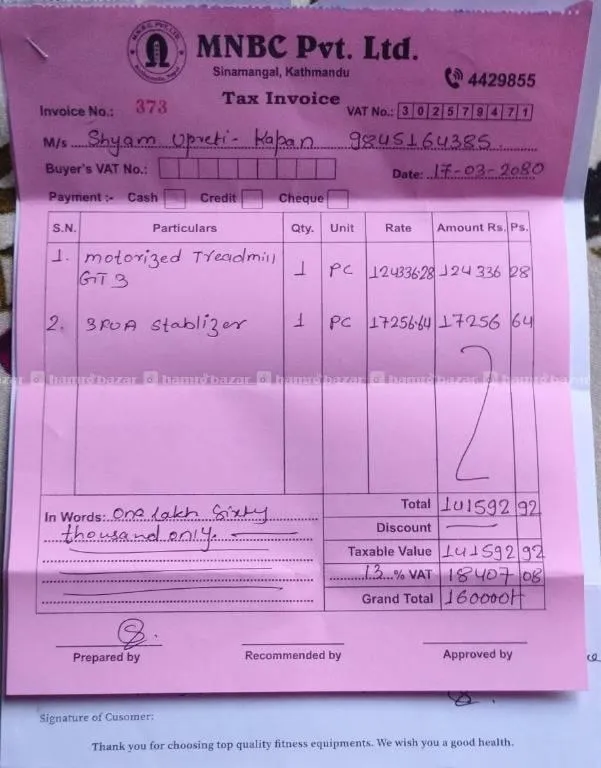 M.N.B.C. PVT. LTD.
Kathmandu, Nepal
MNBC Pvt. Ltd.
Sinamangal, Kathmandu
4429855
Tax Invoice
Invoice No.: 373
VAT No.: 302579471
M/s Shyam Upreti - Kapan 9845164385
Buyer's VAT No.:
Date: 17-03-2080
Payment :- Cash Credit Cheque
S.N. Particulars Qty. Unit Rate Amount Rs. Ps.
1. motorized Treadmill GT 3 1 PC 124336.28 124336 28
2. 3KVA Stablizer 1 PC 17256.64 17256 64
hamrobazar hamrobazar hamrobazar hamrobazar hamrobazar
Total 141592 92
In Words: One lakh Sixty
Discount
thousand only.
Taxable Value 141592 92
13 % VAT 18407 08
Grand Total 160000/-
Prepared by Recommended by Approved by
Signature of Cusomer:
Thank you for choosing top quality fitness equipments. We wish you a good health.